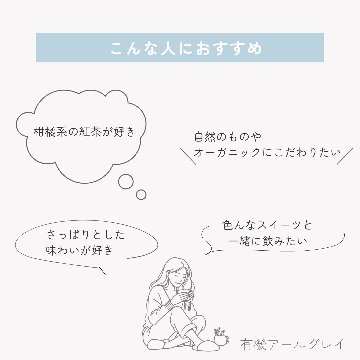 こんな人におすすめ
柑橘系の紅茶が好き
自然のものや
オーガニックにこだわりたい
さっぱりとした
味わいが好き
色んなスイーツと
一緒に飲みたい
有機アールグレイ